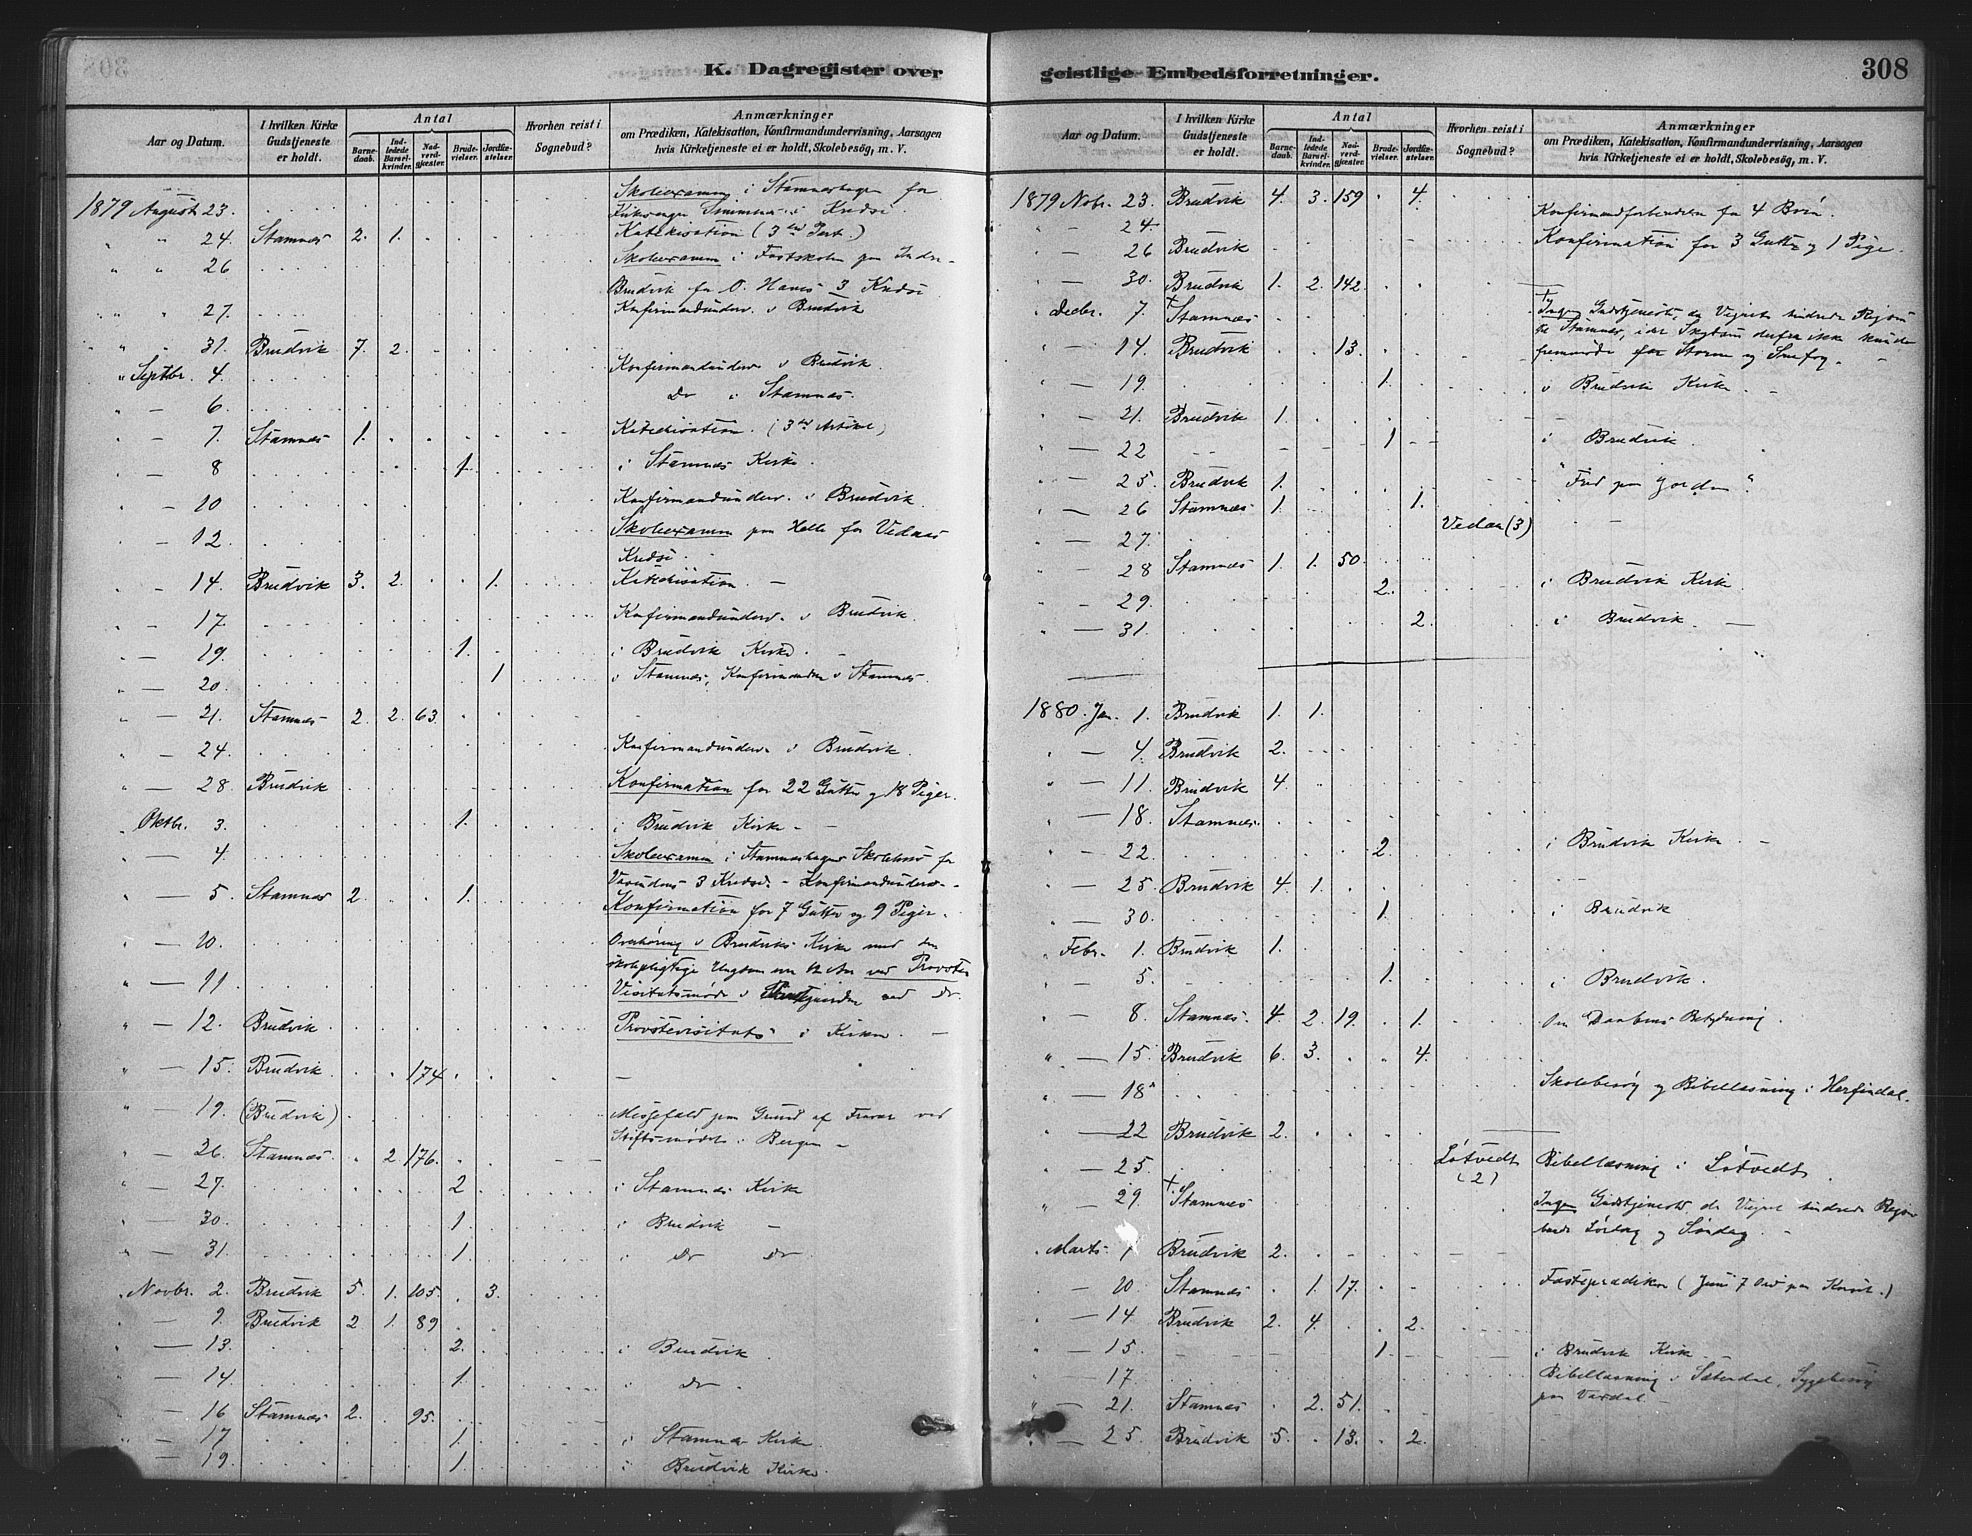 K. Dagregister over
Aar og Datum.
I hvilken Kirke Gudstjeneste er holdt.
Antal
Barnedaab.
Indledede Barselkvinder.
Nadverdgjester.
Brudevielser.
Jordfæstelser.
Hvorhen reist i Sognebud?
Anmærkninger
om Prædiken, Katekisation, Konfirmandundervisning, Aarsagen
hvis Kirketjeneste ei er holdt, Skolebesøg, m. V.
1879 August 23. Skoleexamen i Stamneshagen for
Simmenes Kreds.
" " 24. Stamnes 2. 1. Katekisation (3die Part.)
" " 26 Skoleexamen i Fastskolen paa Indre
Brudvik 3 Kredse
" " 27. Konfirmandunderv. i Brudvik
" " 31. Brudvik 7. 2.
" Septbr. 4. Konfirmandunderv i Brudvik.
" — 6. Do i Stamnes.
" — 7. Stamnes 1. Katekisation. (3die Artikel)
" — 8 1. i Stamnes Kirke.
— 10 Konfirmandunderv. i Brudvik.
" — 12. Skoleexamen paa Helle for Vedaas
Kredse.
" — 14. Brudvik 3. 2. 1. Katekisation. —
" — 17. Konfirmandunderv i Brudvik.
" — 19. 1. i Brudvik Kirke. —
" — 20. 1 i Stamnes, i Stamnes.
" — 21. Stamnes 2. 2. 63.
" — 24. Konfirmandunderv i Brudvik.
" — 28 Brudvik Konfirmation for 22 Gutter og 18 Piger.
" Oktbr. 3. 1. i Brudvik Kirke —
" — 4. Skoleexamen i Stamneshagens Skolehus for
3 Kredse. — Konfirmandunderv. —
" — 5. Stamnes 2. 1. Konfirmation for 7 Gutter og 9 Piger.
" — 10. Overhøring i Brudviks Kirke med den
" — 11. skolepligtige Ungdom ved Provste
Visitatsmøde i ved Do.
" — 12. Brudvik Provstevisitats i Kirken —
" — 15. Brudvik 174 —
" — 19. (Brudvik) Messefald paa Grund af Fravær ved
Stiftsmødet i Bergen —
" — 26. Stamnes 2 176.
" — 27. 2 i Stamnes Kirke
" — 30. 1. i Brudvik —
" — 31. 1. i Do Do
" Novbr. 2. Brudvik 5. 1. 105. 3.
" — 9 Brudvik 2 1. 89
" — 13. 2. i Brudvik.
" — 14. 1. i Do.
" — 16 Stamnes 2. 95.
" — 17 1. i Stamnes Kirke
" — 19. 1. i Brudvik Kirke.
geistlige Embedsforretninger.
308
Aar og Datum.
I hvilken Kirke Gudstjeneste er holdt.
Antal
Barnedaab.
Indledede Barselkvinder.
Nadverdgjester.
Brudevielser.
Jordfæstelser.
Hvorhen reist i Sognebud?
Anmærkninger
om Prædiken, Katekisation, Konfirmandundervisning, Aarsagen
hvis Kirketjeneste ei er holdt, Skolebesøg, m. V.
1879 Nobr. 23. Brudvik 4. 3. 159 4.
" — 24. 4 Børn.
" — 26 Brudvik Konfirmation for 3 Gutter og 1 Pige.
" — 30. Brudvik 1. 2. 142.
" Decbr. 7. + Stamnes + Ingen Gudstjeneste, da Veiret hindrede Reisen
til Stamnes, idet Skydsen derfra ikke kunde
" — 14. Brudvik 13. for Storm og Snefog. —
" — 19. 1. i Brudvik Kirke —
" — 21. Brudvik 1.
" — 22 1 i Brudvik.
" — 25. Brudvik 1. "Fred paa Jorden".
" — 26 Stamnes 1. 1.
" — 27. Vedaa (3)
" — 28 Stamnes 1. 1. 50.
" — 29. 2. i Brudvik Kirke
" — 31. 2. i Brudvik. —
1880. Jan. 1. Brudvik 1. 1.
" — 4. Brudvik 2.
" — 11. Brudvik 4.
" — 18. Stamnes.
" — 22. 2. i Brudvik Kirke —
" — 25. Brudvik 4. 1.
" — 30. 1. i Brudvik
" Febr. 1. Brudvik 1.
" — 5. 1. i Brudvik.
" — 8. Stamnes. 4. 2. 19. 1. Om Daabens Betydning.
" — 15. Brudvik 6. 3. 4.
" — 18. Skolebesøg og Bibellæsning i Herfindal.
" — 22 Brudvik 2.
" — 25. Løtvedt (2) Bibellæsning i Løtvedt.
" — 29. + Stamnes Ingen Gudstjeneste, da Veiret hindrede Reisen
baade Lørdag og Søndag. —
" Marts Brudvik 2.
" — 10. Stamnes 1. 17. Fasteprædiken (Jesu 7 Ord paa Korset.)
" — 14. Brudvik 2. 4. 2.
" — 15. 1. i Brudvik Kirke —
" — 17. Bibellæsning i Sæterdal, Sygebesøg
paa Vardal —
" — 21. Stamnes 2. 51.
" — 25. Brudvik 5. 13. 2.